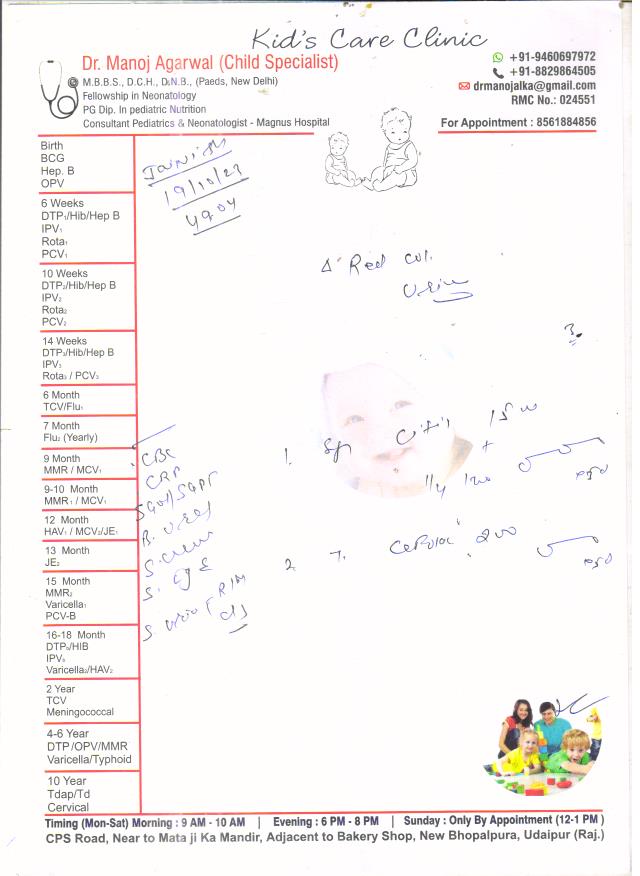 Kid's Care Clinic
Dr. Manoj Agarwal (Child Specialist)
M.B.B.S., D.C.H., D.N.B., (Paeds, New Delhi)
Fellowship in Neonatology
PG Dip. In pediatric Nutrition
Consultant Pediatrics & Neonatologist - Magnus Hospital
+91-9460697972
+91-8829864505
drmanojalka@gmail.com
RMC No.: 024551
For Appointment : 8561884856
19/10/23
Red col.
Urine
3.
1. Sp
2. T.
CBC
CRP
SGOT/SGPT
B. Urea
S.
S. IgE
S.
Birth
BCG
Hep. B
OPV
6 Weeks
DTP₁/Hib/Hep B
IPV₁
Rota₁
PCV₁
10 Weeks
DTP₂/Hib/Hep B
IPV₂
Rota₂
PCV₂
14 Weeks
DTP₃/Hib/Hep B
IPV₃
Rota₃ / PCV₃
6 Month
TCV/Flu₁
7 Month
Flu₂ (Yearly)
9 Month
MMR / MCV₁
9-10 Month
MMR₁ / MCV₁
12 Month
HAV₁ / MCV₂/JE₁
13 Month
JE₂
15 Month
MMR₂
Varicella₁
PCV-B
16-18 Month
DTP₄/HIB
IPV₄
Varicella₂/HAV₂
2 Year
TCV
Meningococcal
4-6 Year
DTP /OPV/MMR
Varicella/Typhoid
10 Year
Tdap/Td
Cervical
Timing (Mon-Sat) Morning : 9 AM - 10 AM | Evening : 6 PM - 8 PM | Sunday : Only By Appointment (12-1 PM )
CPS Road, Near to Mata ji Ka Mandir, Adjacent to Bakery Shop, New Bhopalpura, Udaipur (Raj.)